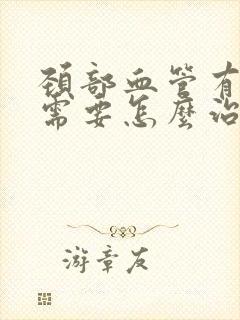 頸部血管有
需要怎麼治
游章友